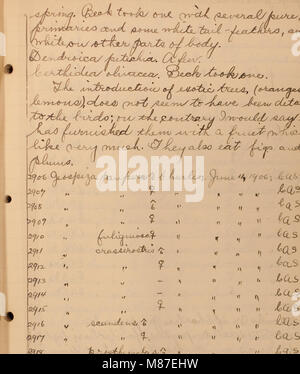 spring. Beck took one with several pure
primaries and some white tail-feathers, an
white on other parts of body.
Dendroica petechia
Certhidea olivacea. Beck took one.
The introduction of exotic trees, (oranges
lemons), does not seem to have been detr
to the birds; on the contrary I would say
has furnished them with a fruit
like very much. They also eat figs and
plums.
2906 Geospiza ♂ June 1906; Cas
2907 " " ♀ " " " " Cas
2908 " " ♀ " " " " Cas
2909 " " ♀ " " " " Cas
2910 " fuliginosa ♀ " " " " Cas
2911 " crassirostris ♂ " " " " Cas
2912 " " ♀ " " " " Cas
2913 " " - " " " " Cas
2914 " " - " " " " Cas
2915 " " ♀ " " " " Cas
2916 " scandens ♂ " " " " Cas
2917 " " ♀ " " " " Cas
2918 " ♂ " " " " Cas
alamy
Image ID: M87EHW
www.alamy.com